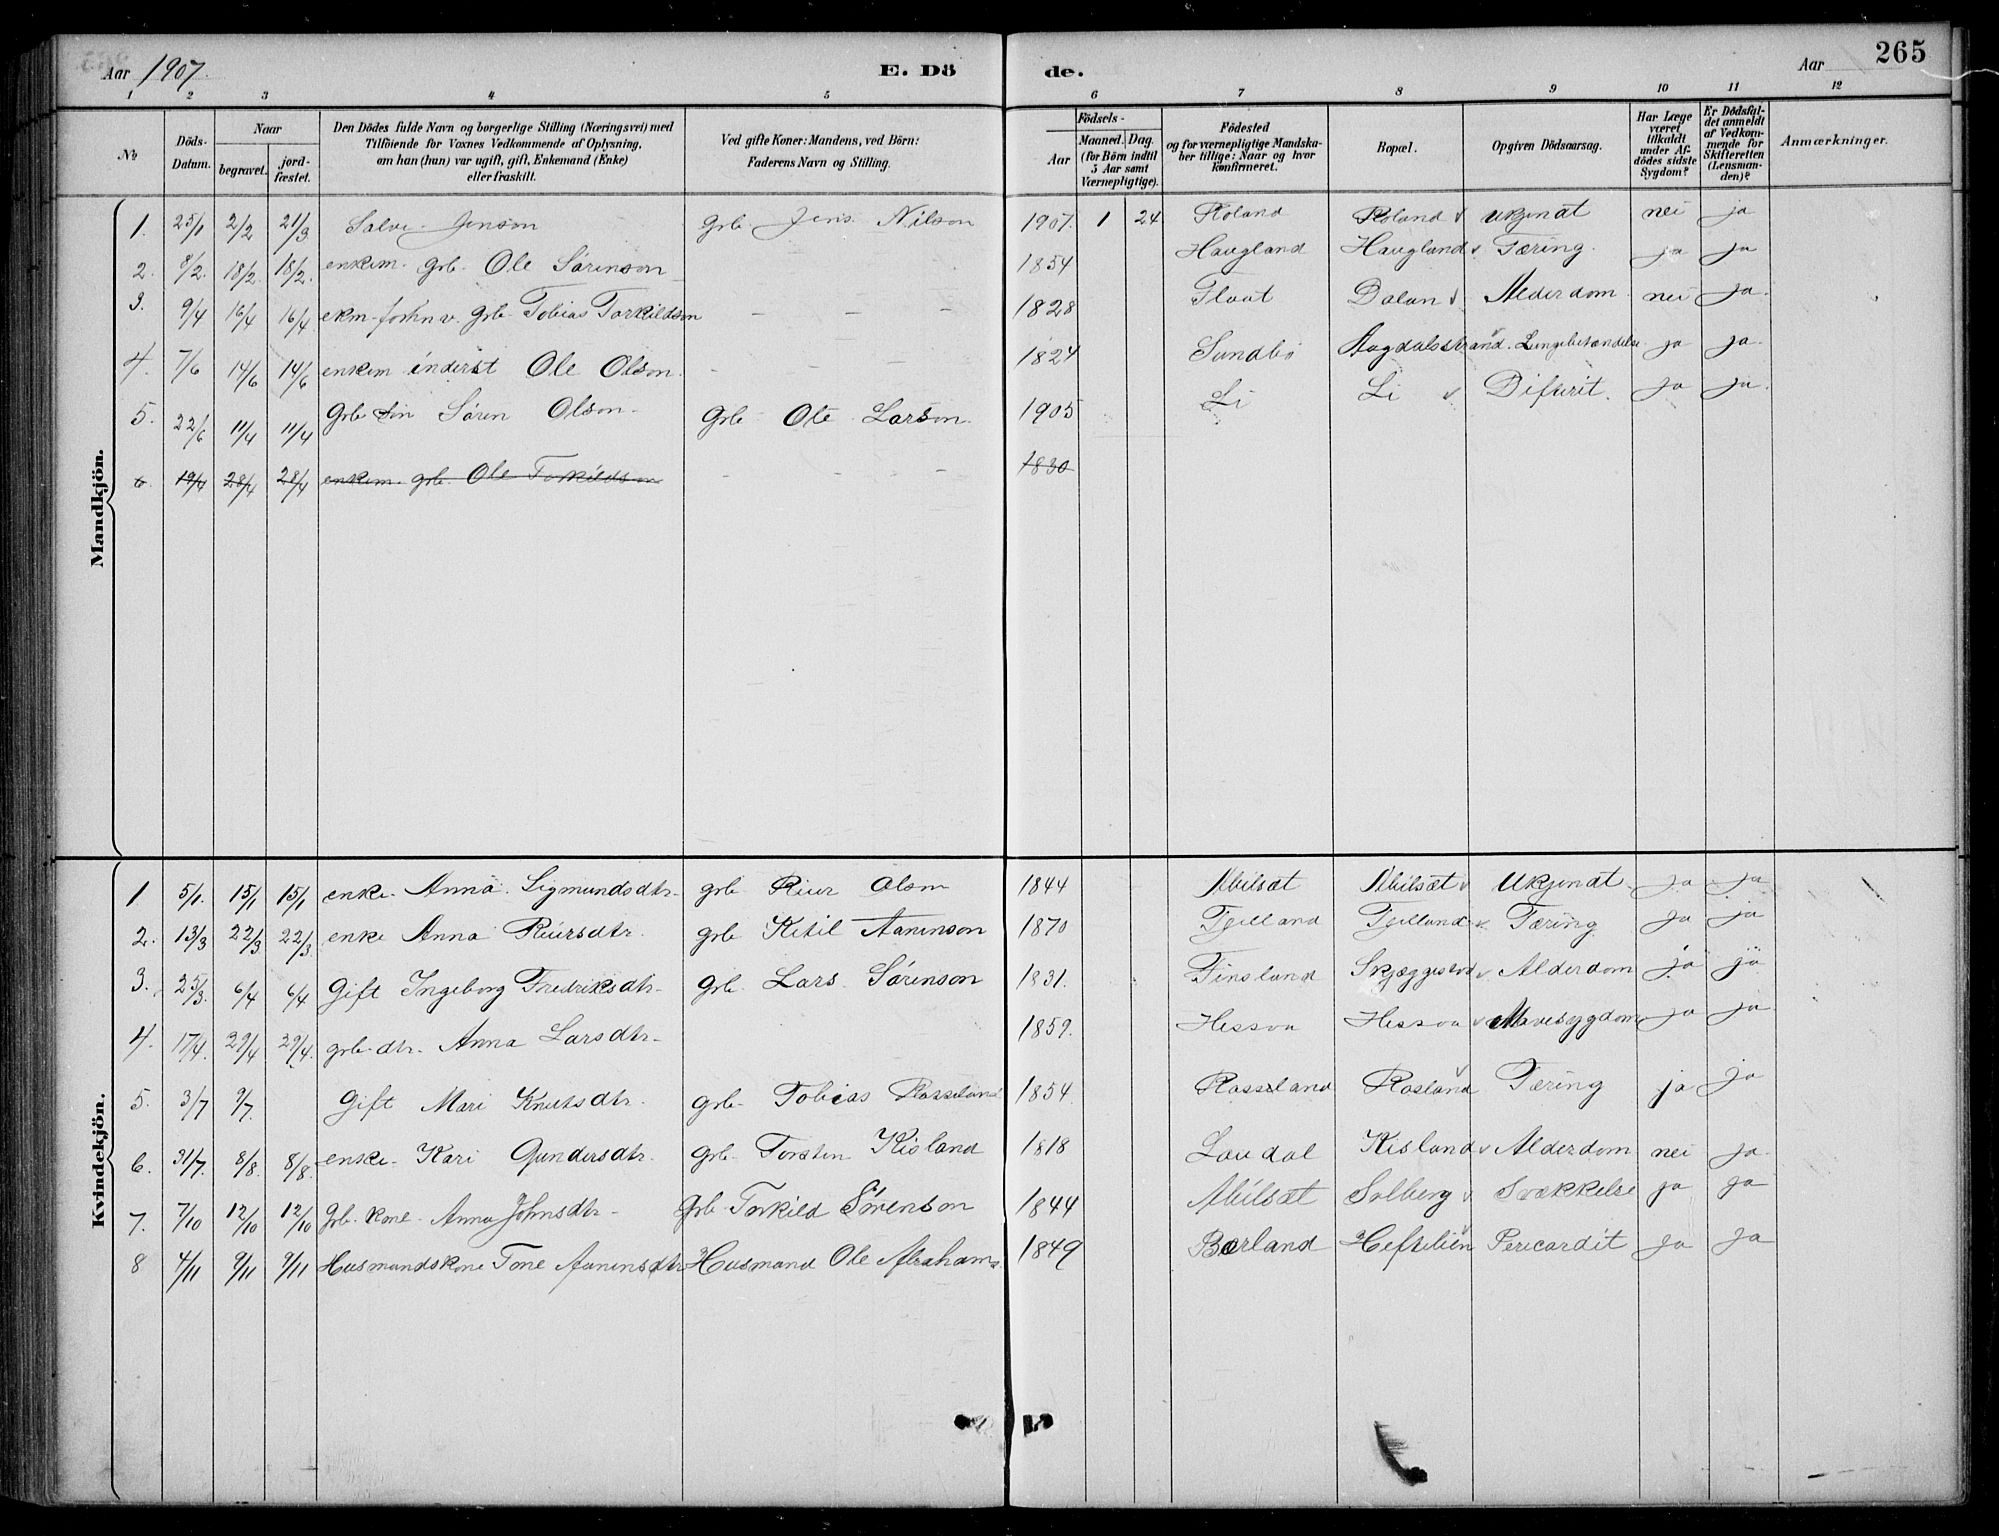 Aar 1907. E. Dö de. Aar 265
1 2 3 4 5 6 7 8 9 10 11 12
No Döds-Datum. Naar begravet. jord-fæstet. Den Dödes fulde Navn og borgerlige Stilling (Næringsvei) med Tilföiende for Voxnes Vedkommende af Oplysning, om han (hun) var ugift, gift, Enkemand (Enke) eller fraskilt. Ved gifte Koner: Mandens, ved Börn: Faderens Navn og Stilling. Födsels- Aar Maaned. Dag. (for Börn indtil 5 Aar samt Værnepligtige). Födested og for værnepligtige Mandskaber tillige: Naar og hvor konfirmeret. Bopæl. Opgiven Dödsaarsag. Har Læge været tilkaldt under Afdödes sidste Sygdom? Er Dödsfaldet anmeldt af Vedkommende for Skifteretten (Lensmanden)? Anmærkninger.
Mandkjön.
1. 25/1 2/2 21/3 Salve Jenson grb. Jens Nilson 1907. 1 24 Roland Roland v ukjendt nei ja
2. 8/2. 18/2 18/2. enkem. grb. Ole Sörenson 1854 Haugland Haugland v. Tæring. ja ja
3. 9/4 16/4 16/4 ekm. forhnv. grb. Tobias Torkildson - - - 1828 Flaat Dalan v Alderdom nei ja.
4. 7/6 14/6 14/6 enkem inderst Ole Olson. - - - 1824 Sundbö Aagdalsstrand. Lungebetændelse ja ja.
5. 22/6 11/4 11/4 Grb sön Sören Olson. Grb - Ole Larson 1905 Li Li v Difterit. ja ja.
6. 19/4 28/4 28/4 enkem. grb. Ole Torkildson - - - 1830
Kvindekjön.
1 5/1. 15/1 15/1 enke. Anna Sigmundsdtr. grb. Reier Olson 1844 Abilsæt Abilsæt v Ukjendt ja ja
2. 13/3 22/3 22/3 enke Anna Reiersdtr. grb Ketil Aanenson 1870 Tjilland Tjilland v. Tæring. ja ja
3. 25/3. 6/4 6/4 Gift Ingeborg Fredriksdtr. grb. Lars Sörenson 1831. Finsland Skjæggestad v Alderdom ja ja
4. 17/4. 29/4 29/4. grb. dtr. Anna Larsdtr. 1859. Hessou Hessou v Mavesygdom ja ja
5. 3/7 9/7. Gift Mari Knutsdtr. grb. Tobias Rosseland 1854 Rosseland Rosland v Tæring ja ja
6. 31/7. 8/8 8/8. enke. Kari Gundersdtr. grb. Torsten Kisland 1818 Laudal Kisland v Alderdom nei ja.
7. 7/10 12/10 12/10 Grb. kone. Anna Johnsdtr - Grb. Torkild Sörenson 1844 Abilsæt Solberg v Svækkelse ja ja
8 4/11 9/11 9/11 Husmandskone Tone Aanensdtr Husmand Ole Abrahams. 1849 Börland Heftelien v Pericardit ja ja